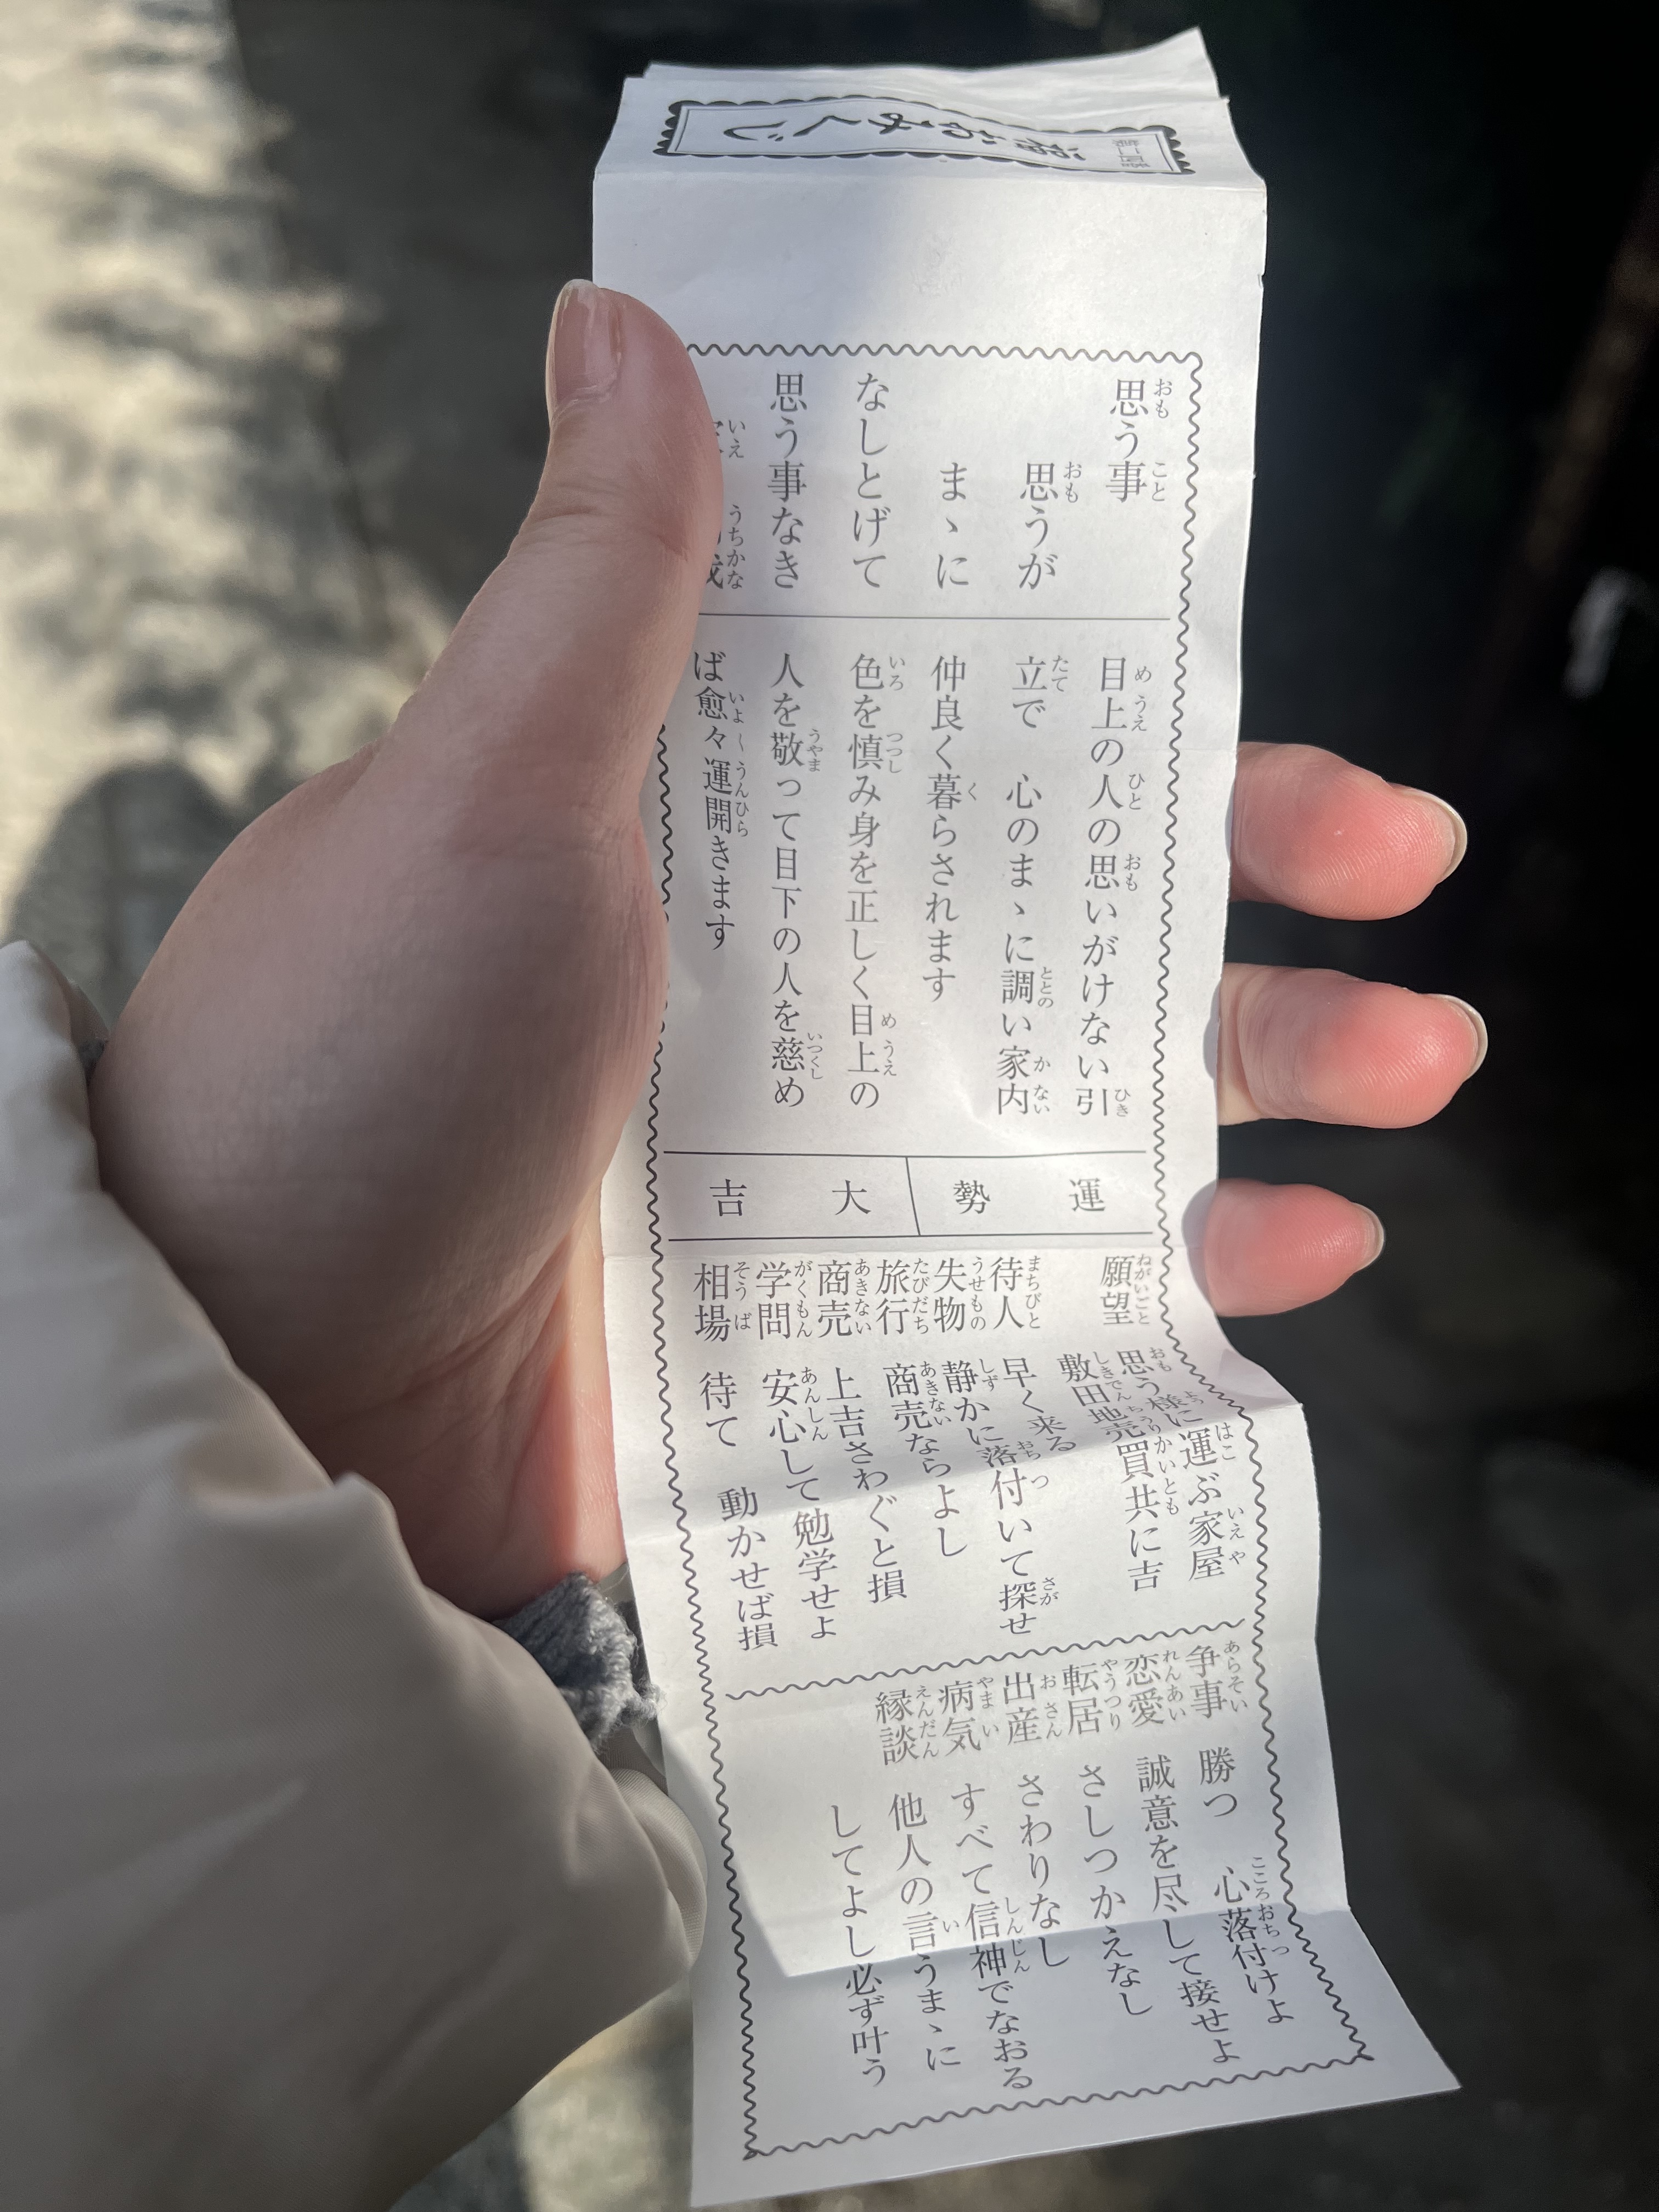 みくじ
思う事
思うが
まゝに
なしとげて
思う事なき
目上の人の思いがけない引
立で 心のまゝに調い家内
仲良く暮らされます
色を慎み身を正しく目上の
人を敬って目下の人を慈め
ば愈々運開きます
運勢 大吉
願望 思う様に運ぶ家屋
敷田地売買共に吉
待人 早く来る
失物 静かに落付いて探せ
旅行 商売ならよし
商売 上吉さわぐと損
学問 安心して勉学せよ
相場 待て 動かせば損
争事 勝つ 心落付けよ
恋愛 誠意を尽して接せよ
転居 さしつかえなし
出産 さわりなし
病気 すべて信神でなおる
縁談 他人の言うまゝに
してよし必ず叶う